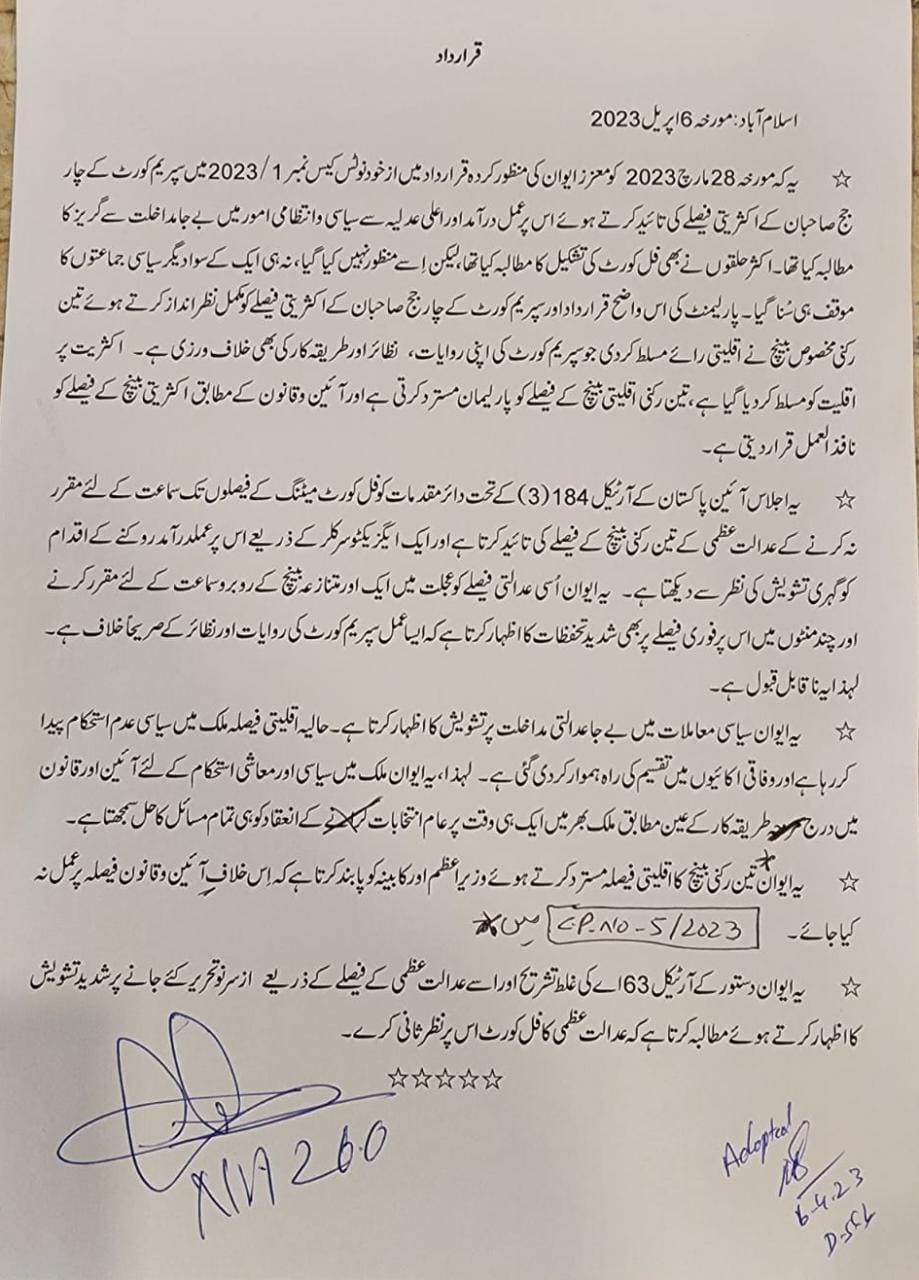 قرارداد
اسلام آباد: مورخہ 6 اپریل 2023
☆ یہ کہ مورخہ 28 مارچ 2023 کو معزز ایوان کی منظور کردہ قرارداد میں ازخود نوٹس کیس نمبر 1/2023 میں سپریم کورٹ کے چار
جج صاحبان کے اکثریتی فیصلے کی تائید کرتے ہوئے اس پر عمل درآمد اور اعلیٰ عدلیہ سے سیاسی و انتظامی امور میں بے جا مداخلت سے گریز کا
مطالبہ کیا تھا۔ اکثر حلقوں نے بھی فل کورٹ کی تشکیل کا مطالبہ کیا تھا، لیکن اِسے منظور نہیں کیا گیا، نہ ہی ایک کے سوا دیگر سیاسی جماعتوں کا
موقف ہی سُنا گیا۔ پارلیمنٹ کی اس واضح قرارداد اور سپریم کورٹ کے چار جج صاحبان کے اکثریتی فیصلے کو مکمل نظر انداز کرتے ہوئے تین
رکنی مخصوص بینچ نے اقلیتی رائے مسلط کر دی جو سپریم کورٹ کی اپنی روایات، نظائر اور طریقہ کار کی بھی خلاف ورزی ہے۔ اکثریت پر
اقلیت کو مسلط کر دیا گیا ہے، تین رکنی اقلیتی بینچ کے فیصلے کو پارلیمان مسترد کرتی ہے اور آئین و قانون کے مطابق اکثریتی بینچ کے فیصلے کو
نافذ العمل قرار دیتی ہے۔
☆ یہ اجلاس آئین پاکستان کے آرٹیکل 184(3) کے تحت دائر مقدمات کو فل کورٹ میٹنگ کے فیصلوں تک سماعت کے لئے مقرر
نہ کرنے کے عدالت عظمی کے تین رکنی بینچ کے فیصلے کی تائید کرتا ہے اور ایک ایگزیکٹو سرکلر کے ذریعے اس پر عملدرآمد روکنے کے اقدام
کو گہری تشویش کی نظر سے دیکھتا ہے۔ یہ ایوان اُسی عدالتی فیصلے کو عجلت میں ایک اور متنازعہ بینچ کے روبرو سماعت کے لئے مقرر کرنے
اور چند منٹوں میں اس پر فوری فیصلے پر بھی شدید تحفظات کا اظہار کرتا ہے کہ ایسا عمل سپریم کورٹ کی روایات اور نظائر کے صریحاً خلاف ہے۔
لہذا یہ نا قابل قبول ہے۔
☆ یہ ایوان سیاسی معاملات میں بے جا عدالتی مداخلت پر تشویش کا اظہار کرتا ہے۔ حالیہ اقلیتی فیصلہ ملک میں سیاسی عدم استحکام پیدا
کر رہا ہے اور وفاقی اکائیوں میں تقسیم کی راہ ہموار کر دی گئی ہے۔ لہذا، یہ ایوان ملک میں سیاسی اور معاشی استحکام کے لئے آئین اور قانون
میں درج طریقہ کار کے عین مطابق ملک بھر میں ایک ہی وقت پر عام انتخابات کے انعقاد کو ہی تمام مسائل کا حل سمجھتا ہے۔
☆ یہ ایوان تین رکنی بینچ کا اقلیتی فیصلہ مسترد کرتے ہوئے وزیراعظم اور کابینہ کو پابند کرتا ہے کہ اِس خلافِ آئین و قانون فیصلہ پر عمل نہ
کیا جائے۔ C.P-NO-5/2023 میں
☆ یہ ایوان دستور کے آرٹیکل 63اے کی غلط تشریح اور اسے عدالت عظمی کے فیصلے کے ذریعے از سر نو تحریر کئے جانے پر شدید تشویش
کا اظہار کرتے ہوئے مطالبہ کرتا ہے کہ عدالت عظمی کا فل کورٹ اس پر نظر ثانی کرے۔
☆☆☆☆☆
NA 260
Adopted
6.4.23